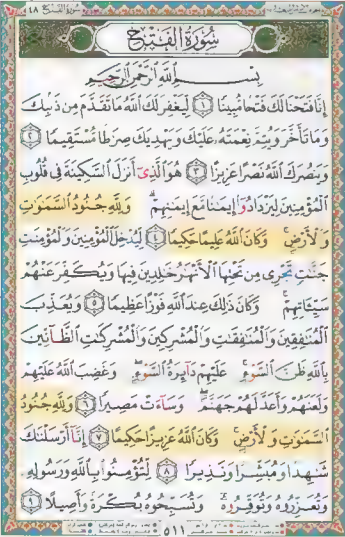 سورة الفتح ٤٨
سُورَةُ الفَتْحِ
بِسْمِ اللَّهِ الرَّحْمَٰنِ الرَّحِيمِ
إِنَّا فَتَحْنَا لَكَ فَتْحًا مُّبِينًا ١ لِّيَغْفِرَ لَكَ اللَّهُ مَا تَقَدَّمَ مِن ذَنۢبِكَ
وَمَا تَأَخَّرَ وَيُتِمَّ نِعْمَتَهُۥ عَلَيْكَ وَيَهْدِيَكَ صِرَٰطًا مُّسْتَقِيمًا ٢
وَيَنصُرَكَ اللَّهُ نَصْرًا عَزِيزًا ٣ هُوَ الَّذِىٓ أَنزَلَ السَّكِينَةَ فِى قُلُوبِ
الْمُؤْمِنِينَ لِيَزْدَادُوٓا۟ إِيمَٰنًا مَّعَ إِيمَٰنِهِمْ ۗ وَلِلَّهِ جُنُودُ السَّمَٰوَٰتِ
وَالْأَرْضِ ۚ وَكَانَ اللَّهُ عَلِيمًا حَكِيمًا ٤ لِّيُدْخِلَ الْمُؤْمِنِينَ وَالْمُؤْمِنَٰتِ
جَنَّٰتٍ تَجْرِى مِن تَحْتِهَا الْأَنْهَٰرُ خَٰلِدِينَ فِيهَا وَيُكَفِّرَ عَنْهُمْ
سَيِّـَٔاتِهِمْ ۚ وَكَانَ ذَٰلِكَ عِندَ اللَّهِ فَوْزًا عَظِيمًا ٥ وَيُعَذِّبَ
الْمُنَٰفِقِينَ وَالْمُنَٰفِقَٰتِ وَالْمُشْرِكِينَ وَالْمُشْرِكَٰتِ الظَّآنِّينَ
بِاللَّهِ ظَنَّ السَّوْءِ ۚ عَلَيْهِمْ دَآئِرَةُ السَّوْءِ ۖ وَغَضِبَ اللَّهُ عَلَيْهِمْ
وَلَعَنَهُمْ وَأَعَدَّ لَهُمْ جَهَنَّمَ ۖ وَسَآءَتْ مَصِيرًا ٦ وَلِلَّهِ جُنُودُ
السَّمَٰوَٰتِ وَالْأَرْضِ ۚ وَكَانَ اللَّهُ عَزِيزًا حَكِيمًا ٧ إِنَّآ أَرْسَلْنَٰكَ
شَٰهِدًا وَمُبَشِّرًا وَنَذِيرًا ٨ لِّتُؤْمِنُوا۟ بِاللَّهِ وَرَسُولِهِۦ
وَتُعَزِّرُوهُ وَتُوَقِّرُوهُ ۚ وَتُسَبِّحُوهُ بُكْرَةً وَأَصِيلًا ٩
٥١١